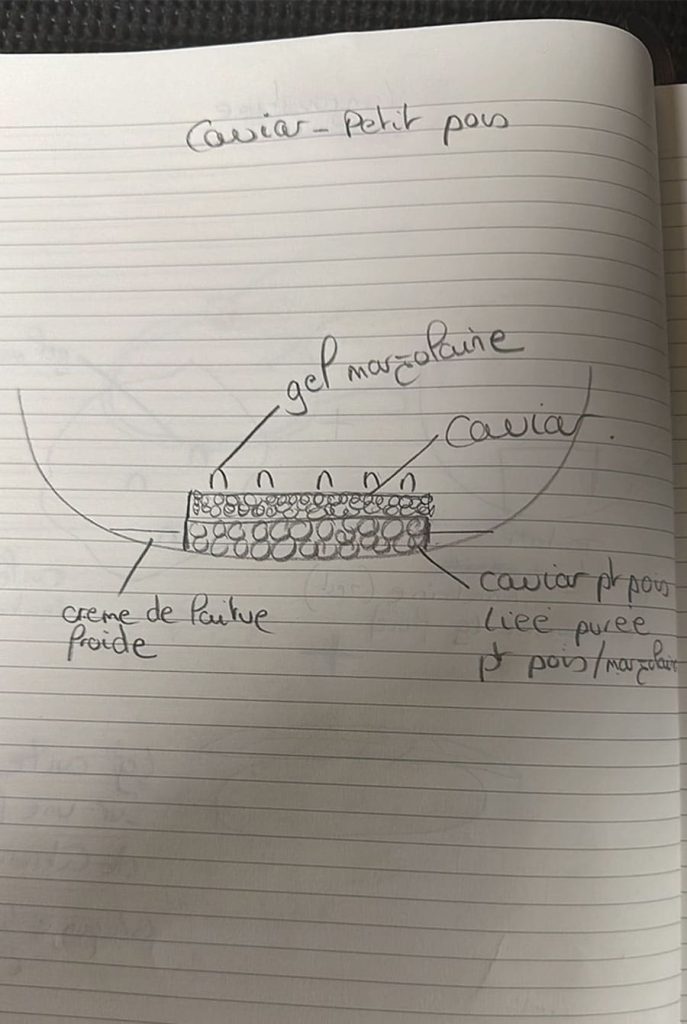 Caviar - Petit pois
gel margolaine
Caviar.
creme de laitue
froide
caviar pt pois
liée purée
pt pois/margolaine